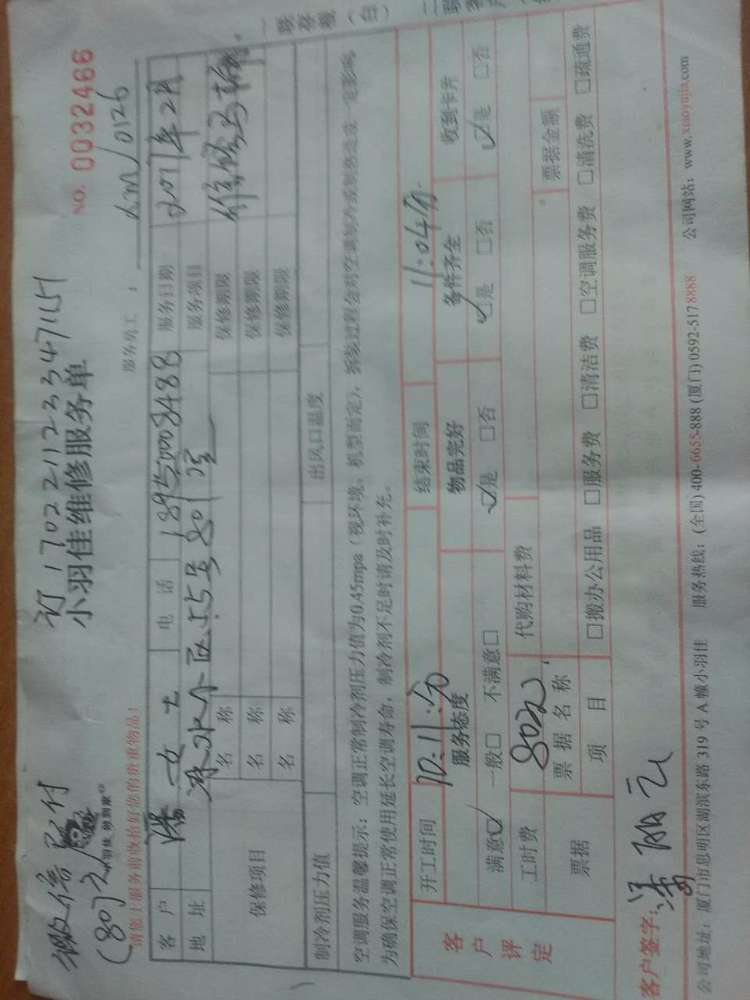 微信已付
(80元)
订170221123347151
小羽佳维修服务单
NO. 0032466
请您于服务前收拾好您的贵重物品!
服务员工：
xm/0126
客户 潘女士 电话 18950008488 服务日期 2017年2月
地址 55号801室 服务项目
保修项目 名称 保修期限
名称 保修期限
名称 保修期限
制冷剂压力值 出风口温度
空调服务温馨提示：空调正常制冷剂压力值为0.45mpa（视环境、机型而定），拆装过程会对空调制冷或制热造成一定影响，
为确保空调正常使用延长空调寿命，制冷剂不足时请及时补充。
客户评定
开工时间 10:11分 结束时间 11:04分
服务态度 物品完好 备件齐全 收到卡片
满意☑ 一般□ 不满意□ ☑是 □否 ☑是 □否 ☑是 □否
工时费 80元 代购材料费 票据金额
票据 票据名称
项目 □搬办公用品 □服务费 □清洁费 □空调服务费 □清洗费 □疏通费
客户签字:潘丽云
公司地址：厦门市思明区湖滨东路 319 号 A 幢小羽佳 服务热线：(全国) 400-6655-888 (厦门) 0592-5178888 公司网站：www.xiaoyujia.com